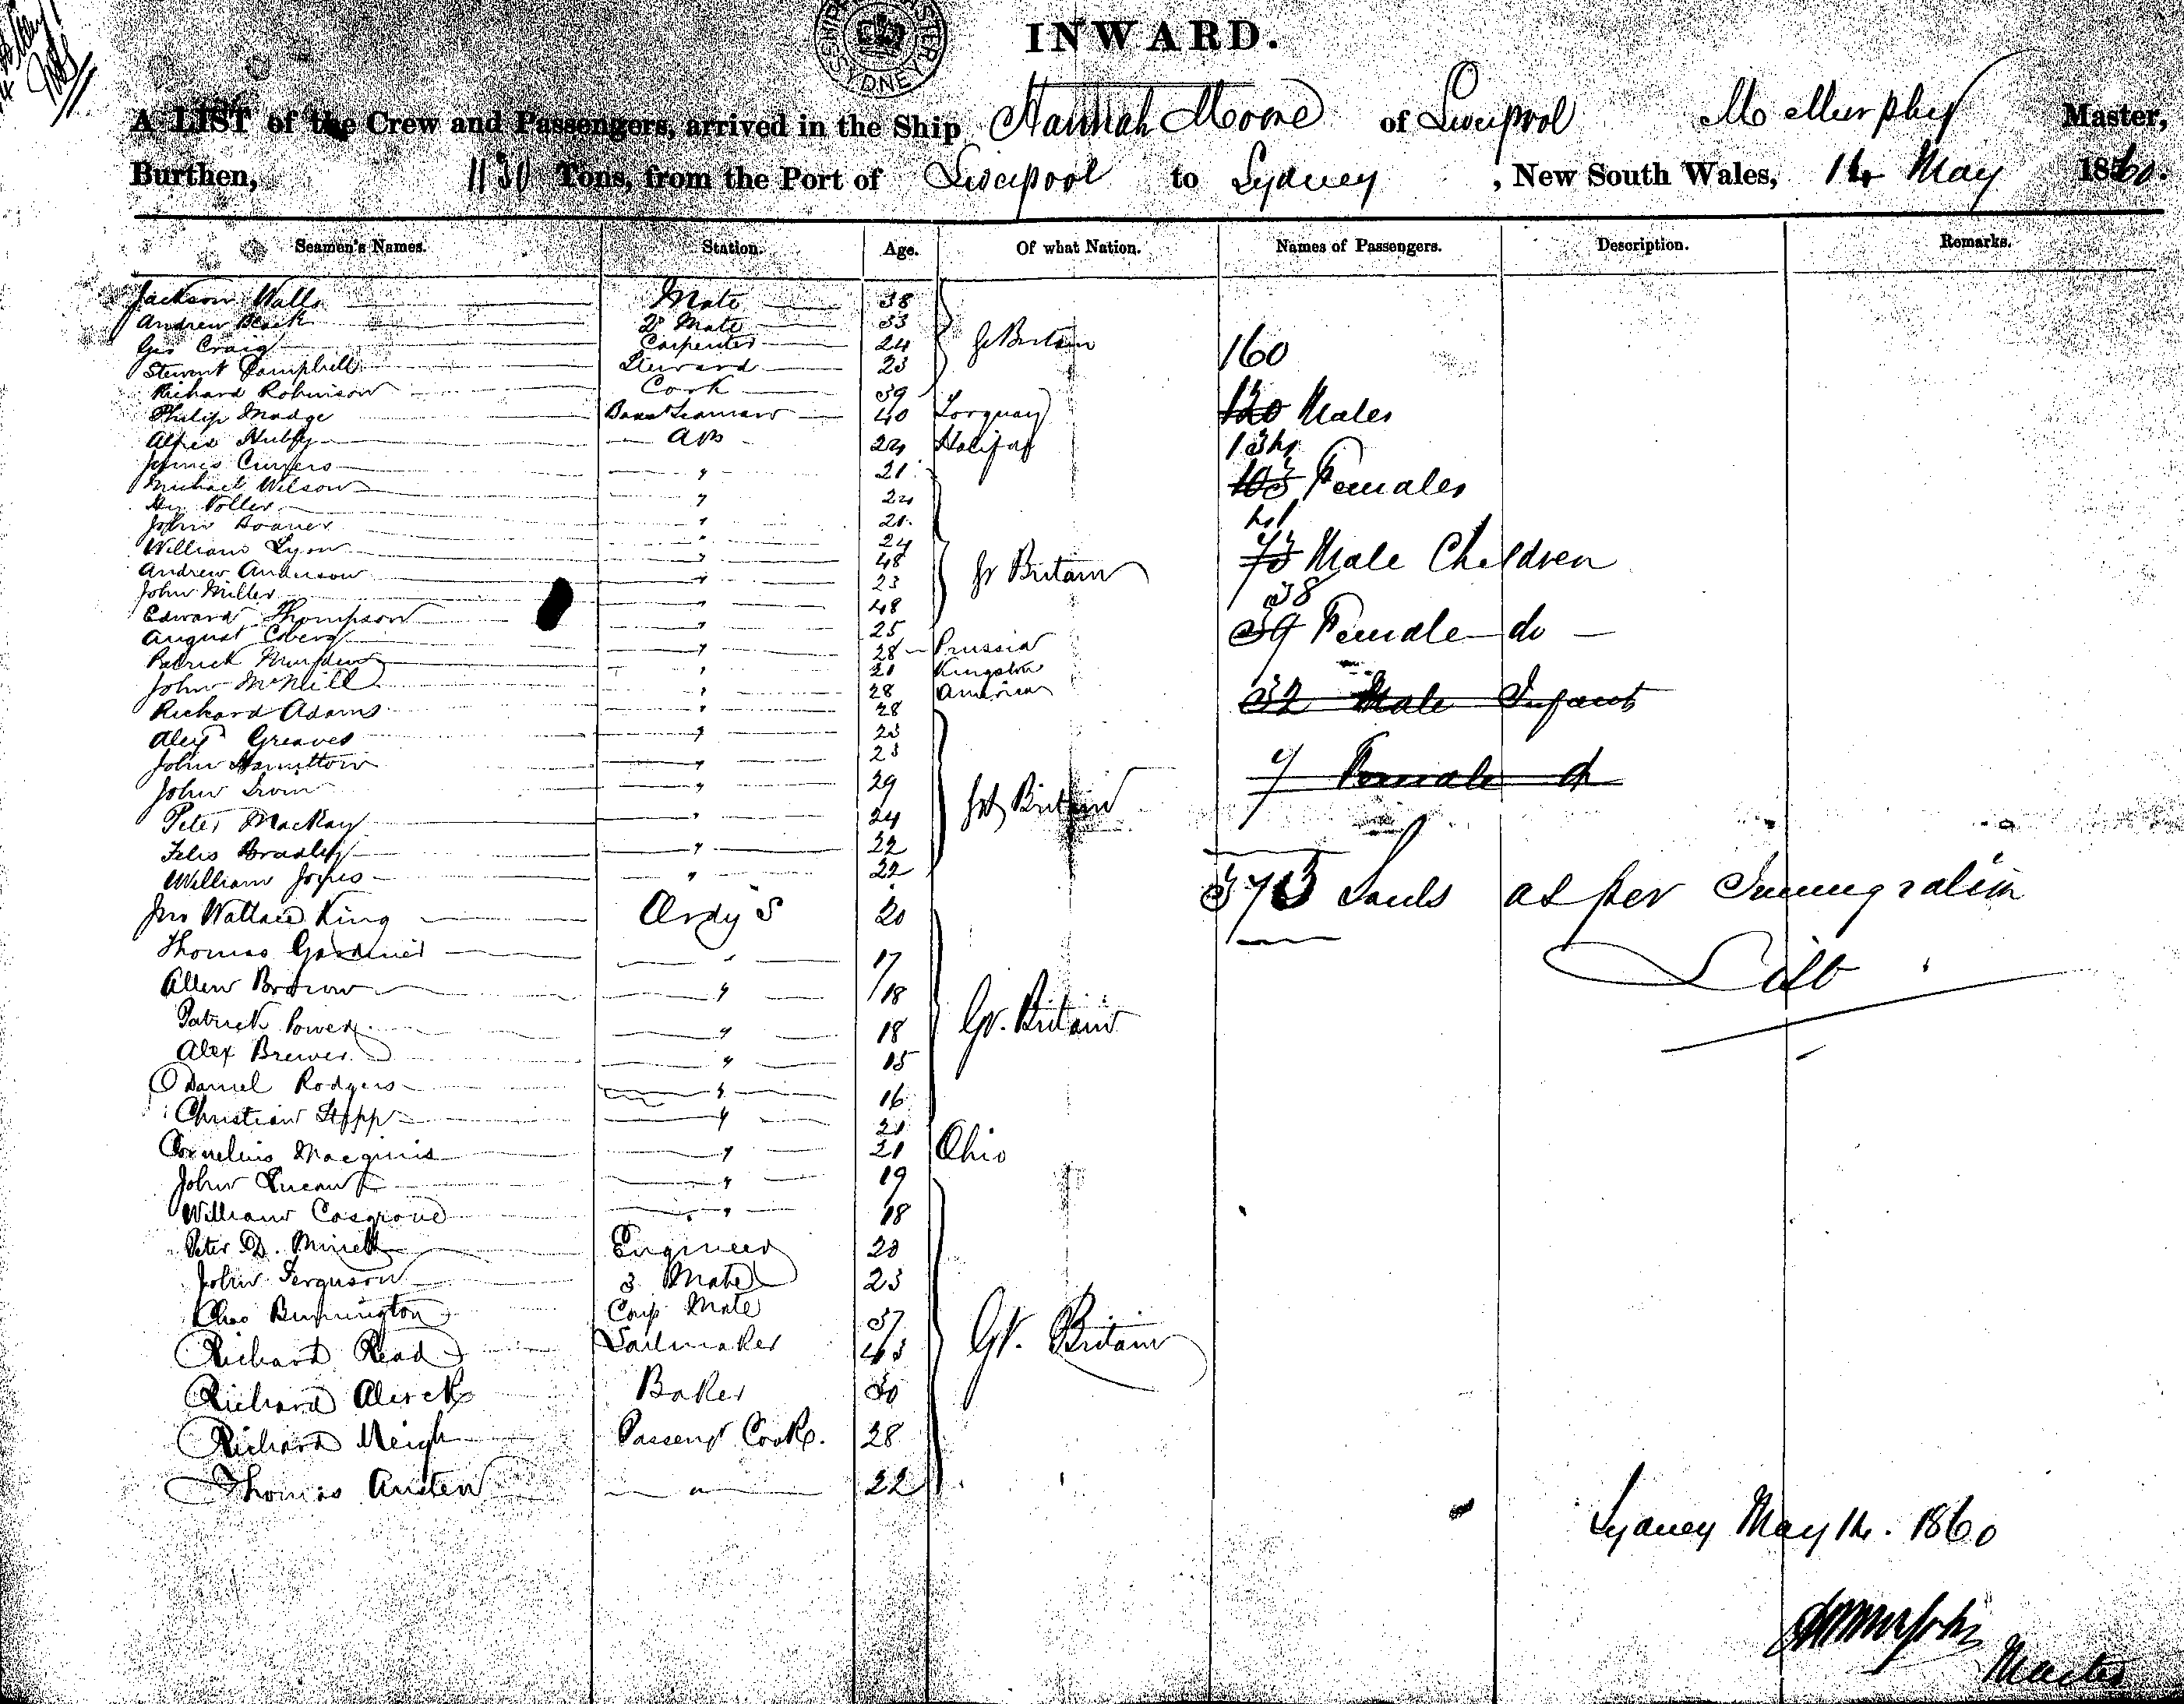 INWARD.
SYDNEY
A LIST of the Crew and Passengers, arrived in the Ship Hannah Moore of Liverpool M Murphy Master,
Burthen, 1130 Tons, from the Port of Liverpool to Sydney, New South Wales, 14 May 1860.
Seamen's Names. Station. Age. Of what Nation. Names of Passengers. Description. Remarks.
Jackson Walls Mate 38
Andrew Black 2d Mate 33
Geo Craig Carpenter 24 Gt Britain
Stewart Campbell Steward 23
160
Richard Robinson Cook 39
Philip Madge Seaman 40 Torquay
120 Males
Alfred AB 24 Halifax
134
James 21
Michael Wilson " 24
103 Females
Hy " 21
John " 24
41
William Lyon " 48
Andrew Anderson " 23 Gt Britain
73 Male Children
John Miller " 48
38
Edward Thompson " 25
39 Female do
August Coberg " 28 Prussia
Patrick " 21 Kingston
John McNeill " 28 America
32 Male Infants
Richard Adams " 28
Alex Greaves " 23
John Hamilton " 23
7 Female d
John Irvin " 29
Peter MacKay " 24 Gt Britain
Felis Bradley " 22
William Joyes " 22
373 Souls as per Immigration
List
Jno Wallace King Ordy S 20
Thomas Gardiner " 17
Allen Brown " 18
Patrick Power " 18 Gt. Britain
Alex Brewer " 15
Daniel Rodgers " 16
Christian Stopp " 21
Cornelius Macginis " 21 Ohio
John " 19
William Cosgrove " 18
Peter D. Engineer 20
John Ferguson 3 Mate 23
Chas Bunnington Carp Mate 37
Richard Read Sailmaker 43 Gt. Britain
Richard Baker 30
Richard Meigh Passengr Cook. 28
Thomas Austen " 22
Sydney May 14. 1860
Master